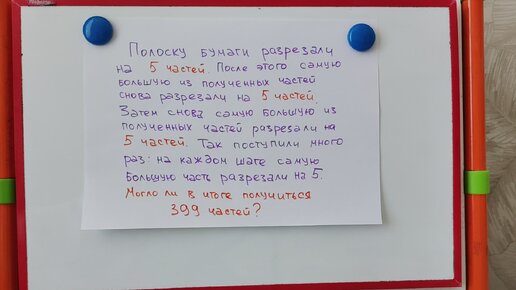 Полоску бумаги разрезали
на 5 частей. После этого самую
большую из полученных частей
снова разрезали на 5 частей.
Затем снова самую большую из
полученных частей разрезали на
5 частей. Так поступили много
раз: на каждом шаге самую
большую часть разрезали на 5.
Могло ли в итоге получиться
399 частей?